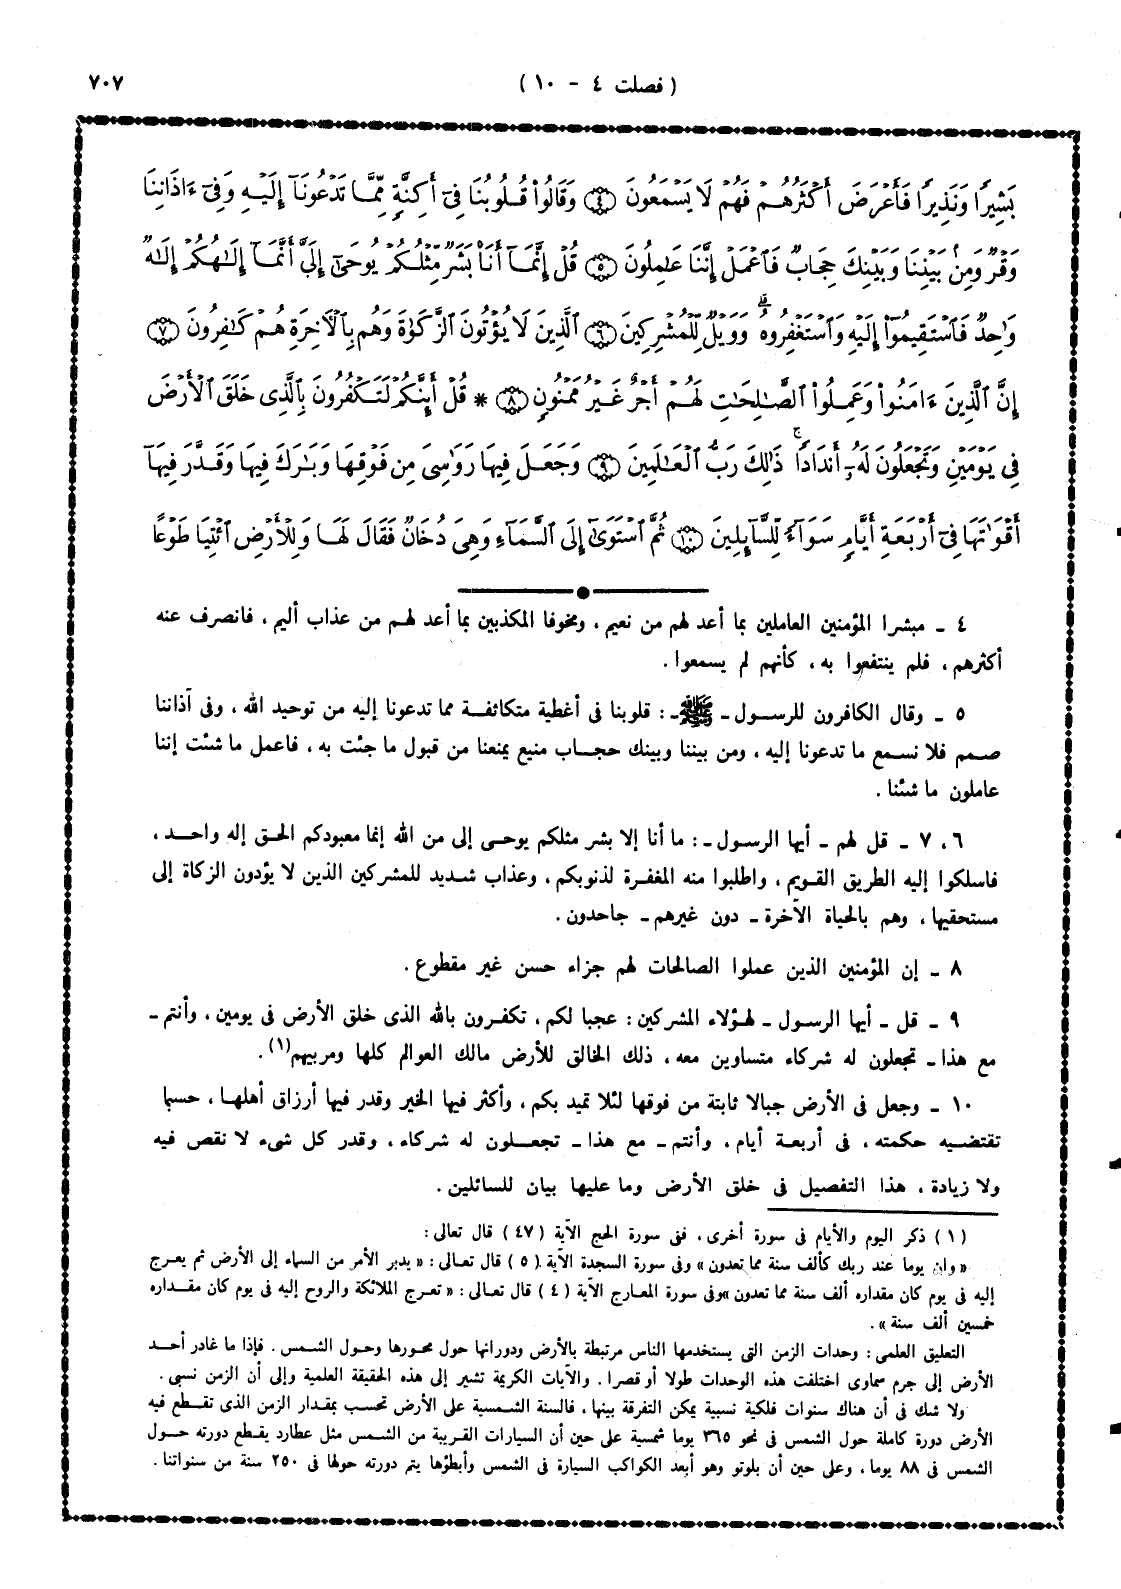 ٧٠٧
( فصلت ٤ - ١٠ )
بَشِيرًا وَنَذِيرًا فَأَعْرَضَ أَكْثَرُهُمْ فَهُمْ لَا يَسْمَعُونَ ﴿٤﴾ وَقَالُوا۟ قُلُوبُنَا فِىٓ أَكِنَّةٍ مِّمَّا تَدْعُونَآ إِلَيْهِ وَفِىٓ ءَاذَانِنَا
وَقْرٌ وَمِنۢ بَيْنِنَا وَبَيْنِكَ حِجَابٌ فَٱعْمَلْ إِنَّنَا عَـٰمِلُونَ ﴿٥﴾ قُلْ إِنَّمَآ أَنَا۠ بَشَرٌ مِّثْلُكُمْ يُوحَىٰٓ إِلَىَّ أَنَّمَآ إِلَـٰهُكُمْ إِلَـٰهٌ
وَٰحِدٌ فَٱسْتَقِيمُوٓا۟ إِلَيْهِ وَٱسْتَغْفِرُوهُ ۗ وَوَيْلٌ لِّلْمُشْرِكِينَ ﴿٦﴾ ٱلَّذِينَ لَا يُؤْتُونَ ٱلزَّكَوٰةَ وَهُم بِٱلْأَخِرَةِ هُمْ كَـٰفِرُونَ ﴿٧﴾
إِنَّ ٱلَّذِينَ ءَامَنُوا۟ وَعَمِلُوا۟ ٱلصَّـٰلِحَـٰتِ لَهُمْ أَجْرٌ غَيْرُ مَمْنُونٍ ﴿٨﴾ * قُلْ أَئِنَّكُمْ لَتَكْفُرُونَ بِٱلَّذِى خَلَقَ ٱلْأَرْضَ
فِى يَوْمَيْنِ وَتَجْعَلُونَ لَهُۥٓ أَندَادًا ۚ ذَٰلِكَ رَبُّ ٱلْعَـٰلَمِينَ ﴿٩﴾ وَجَعَلَ فِيهَا رَوَٰسِىَ مِن فَوْقِهَا وَبَـٰرَكَ فِيهَا وَقَدَّرَ فِيهَآ
أَقْوَٰتَهَا فِىٓ أَرْبَعَةِ أَيَّامٍ سَوَآءً لِّلسَّآئِلِينَ ﴿١٠﴾ ثُمَّ ٱسْتَوَىٰٓ إِلَى ٱلسَّمَآءِ وَهِىَ دُخَانٌ فَقَالَ لَهَا وَلِلْأَرْضِ ٱئْتِيَا طَوْعًا
٤ ـ مبشرا المؤمنين العاملين بما أعد لهم من نعيم ، ومخوفا المكذبين بما أعد لهم من عذاب أليم ، فانصرف عنه
أكثرهم ، فلم ينتفعوا به ، كأنهم لم يسمعوا .
٥ ـ وقال الكافرون للرسول ـ ﷺ ـ : قلوبنا فى أغطية متكاثفة مما تدعونا إليه من توحيد الله ، وفى آذاننا
صمم فلا نسمع ما تدعونا إليه ، ومن بيننا وبينك حجاب منيع يمنعنا من قبول ما جئت به ، فاعمل ما شئت إننا
عاملون ما شئنا .
٦ ، ٧ ـ قل لهم ـ أيها الرسول ـ : ما أنا إلا بشر مثلكم يوحى إلى من الله إنما معبودكم الحق إله واحد ،
فاسلكوا إليه الطريق القويم ، واطلبوا منه المغفرة لذنوبكم ، وعذاب شديد للمشركين الذين لا يؤدون الزكاة إلى
مستحقيها ، وهم بالحياة الآخرة ـ دون غيرهم ـ جاحدون .
٨ ـ إن المؤمنين الذين عملوا الصالحات لهم جزاء حسن غير مقطوع .
٩ ـ قل ـ أيها الرسول ـ لهؤلاء المشركين : عجبا لكم ، تكفرون بالله الذى خلق الأرض فى يومين ، وأنتم ـ
مع هذا ـ تجعلون له شركاء متساوين معه ، ذلك الخالق للأرض مالك العوالم كلها ومربيهم(١) .
١٠ ـ وجعل فى الأرض جبالا ثابتة من فوقها لئلا تميد بكم ، وأكثر فيها الخير وقدر فيها أرزاق أهلها ، حسبما
تقتضيه حكمته ، فى أربعة أيام ، وأنتم ـ مع هذا ـ تجعلون له شركاء ، وقدر كل شىء لا نقص فيه
ولا زيادة ، هذا التفصيل فى خلق الأرض وما عليها بيان للسائلين .
( ١ ) ذكر اليوم والأيام فى سورة أخرى ، ففى سورة الحج الآية ( ٤٧ ) قال تعالى :
« وإن يوما عند ربك كألف سنة مما تعدون » وفى سورة السجدة الآية ( ٥ ) قال تعالى : « يدبر الأمر من السماء إلى الأرض ثم يعرج
إليه فى يوم كان مقداره ألف سنة مما تعدون » وفى سورة المعارج الآية ( ٤ ) قال تعالى : « تعرج الملائكة والروح إليه فى يوم كان مقداره
خمسين ألف سنة » .
التعليق العلمى : وحدات الزمن التى يستخدمها الناس مرتبطة بالأرض ودورانها حول محورها وحول الشمس . فإذا ما غادر أحد
الأرض إلى جرم سماوى اختلفت هذه الوحدات طولا أو قصرا . والآيات الكريمة تشير إلى هذه الحقيقة العلمية وإلى أن الزمن نسبى .
ولا شك فى أن هناك سنوات فلكية نسبية يمكن التفرقة بينها ، فالسنة الشمسية على الأرض تحسب بمقدار الزمن الذى تقطع فيه
الأرض دورة كاملة حول الشمس فى نحو ٣٦٥ يوما شمسية على حين أن السيارات القريبة من الشمس مثل عطارد يقطع دورته حول
الشمس فى ٨٨ يوما ، وعلى حين أن بلوتو وهو أبعد الكواكب السيارة فى الشمس وأبطؤها يتم دورته حولها فى ٢٥٠ سنة من سنواتنا .